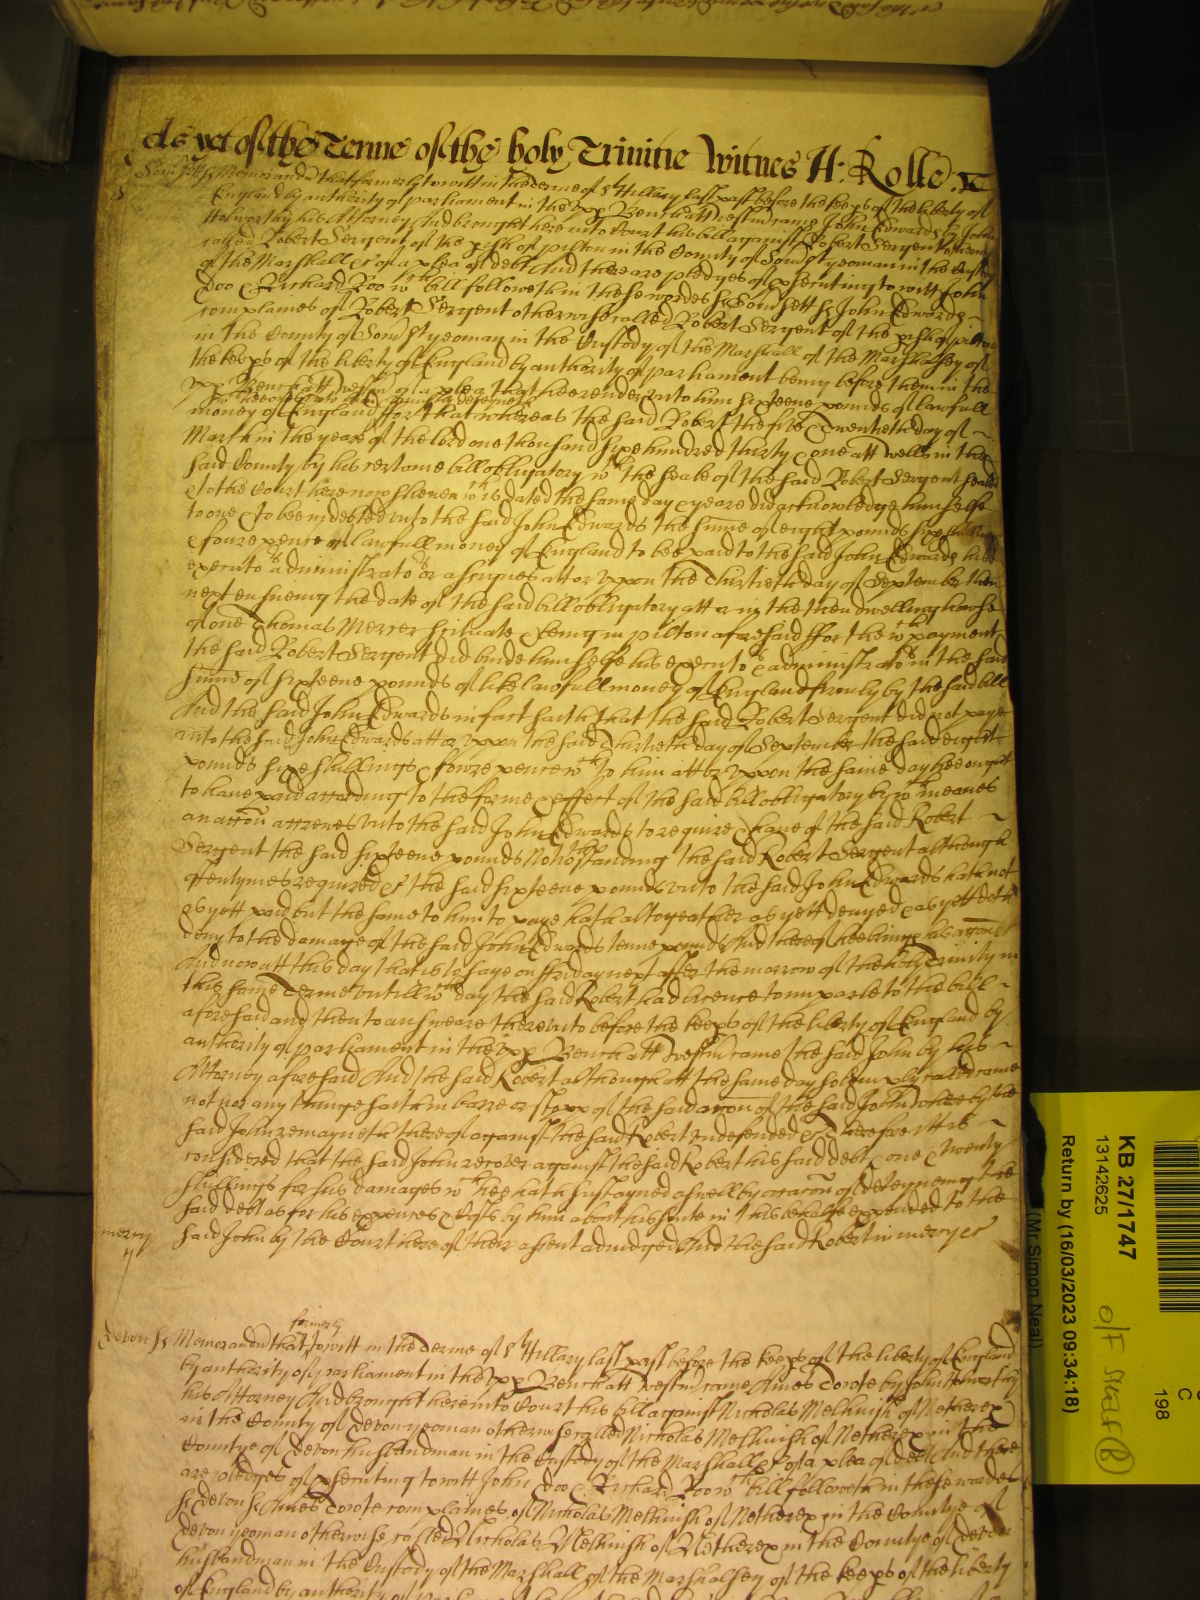 As yet of the Terme of the holy Trinitie Witnes H: Rolle
Somst ss Memorandu that formerly to witt in the terme of St Hillary last past before the keeps of the liberty of
England by authority of parliament in the vpp Bench att Westm came John Edwards by John
his Attorney And brought here into Court his bill against Robert Sergent otherwise
called Robert Sergent of the pish of pilton in the County of Somst yeoman in the Custody
of the Marshall &c of a plea of debt And there are pledges of psecuting to witt John
Doo & Richard Roo wch bill followeth in these wordes ss Somsett ss John Edwards
complaines of Robert Sergent otherwise called Robert Sergent of the pish of pilton
in the County of Somst yeoman in the Custody of the Marshall of the Marshalsey of
the keeps of the liberty of England by authority of parliament being before them in the
vpp Bench att Westm of a plea that hee render vnto him sixteene pounds of lawfull
money of England ffor that whereas the said Robert the five & Twentieth day of
March in the yeare of the lord one thousand sixe hundred thirty & one att Wells in the
said County by his certaine bill obligatory wth the seale of the said Robert Sergent sealed
& to the Court here now shewen wch is dated the same day & yeare did acknowledge himselfe
to owe & to bee indebted vnto the said John Edwards the summe of eight pounds sixe shillings
& foure pence of lawfull money of England to bee paid to the said John Edwards his
executors administrators or assignes att or vppon the Thirtieth day of September then
next ensueing the date of the said bill obligatory att or in the then dwelling house
of one Thomas Mercer scituate & being in pilton aforesaid ffor the wch payment
the said Robert Sergent did binde himselfe his executors & administrators in the said
summe of sixteene pounds of like lawfull money of England firmly by the said bill
And the said John Edwards in fact saith that the said Robert Sergent did not paye
vnto the said John Edwards att or vppon the said Thirtieth day of September the said eight
pounds sixe shillings & foure pence wch to him att or vppon the same day hee ought
to haue paid according to the forme & effect of the said bill obligatory by wch meanes
an accon accrewes vnto the said John Edwards to require & haue of the said Robert
Sergent the said sixteene pounds Notwthstanding the said Robert Sergent although
oftentymes required &c the said sixteene pounds vnto the said John Edwards hath not
as yett paid but the same to him to paye hath altogeather as yett denyed & as yett doth
deny to the damage of the said John Edwards tenne pounds And thereof hee brings his
And now att this day that is to saye on ffriday next after the morrow of the holy Trinity in
this same Terme vntill wch day the said Robert had licence to imparle to the bill
aforesaid and then to answeare therevnto before the keeps of the liberty of England by
authority of parliament in the vpp Bench att Westm came the said John by his
Attorney aforesaid And the said Robert although att the same day solemply called came
not nor any thinge saith in barre or stopp of the said accon of the said John whereby the
said John remayneth thereof against the said Robert vndefended &c Therefore itt is
considered that the said John recover against the said Robert his said debt & one & twenty
shillings for his damages wch hee hath sustayned aswell by occacon of deteyneing the
said debt as for his expences & Costs by him about his suite in this behalfe expended to the
mercy said John by the Court here of their assent adiudged And the said Robert in mercy &c
formerly
devon ss Memorandu that to witt in the Terme of St Hillary last past before the keeps of the liberty of England
by authority of parliament in the vpp Bench att Westm came Amies Coote by John
his Attorney And brought here into Court his bill against Nicholas Melhuish of Netherex
in the County of devon yeoman otherwise called Nicholas Melhuish of Netherex in the
Countye of devon husbandman in the Custody of the Marshall &c of a plea of debt And there
are pledges of psecuting to witt John Doo & Richard Roo wch bill followeth in these wordes
ss devon ss Amies Coote complaines of Nicholas Melhuish of Netherex in the Countye of
devon yeoman otherwise called Nicholas Melhuish of Netherex in the Countye of devon
husbandman in the Custody of the Marshall of the Marshalsey of the keeps of the liberty
of England by authority of
KB 27/1747
13142625
Return by (16/03/2023 09:34:18)
(Mr Simon Neal)
C
198